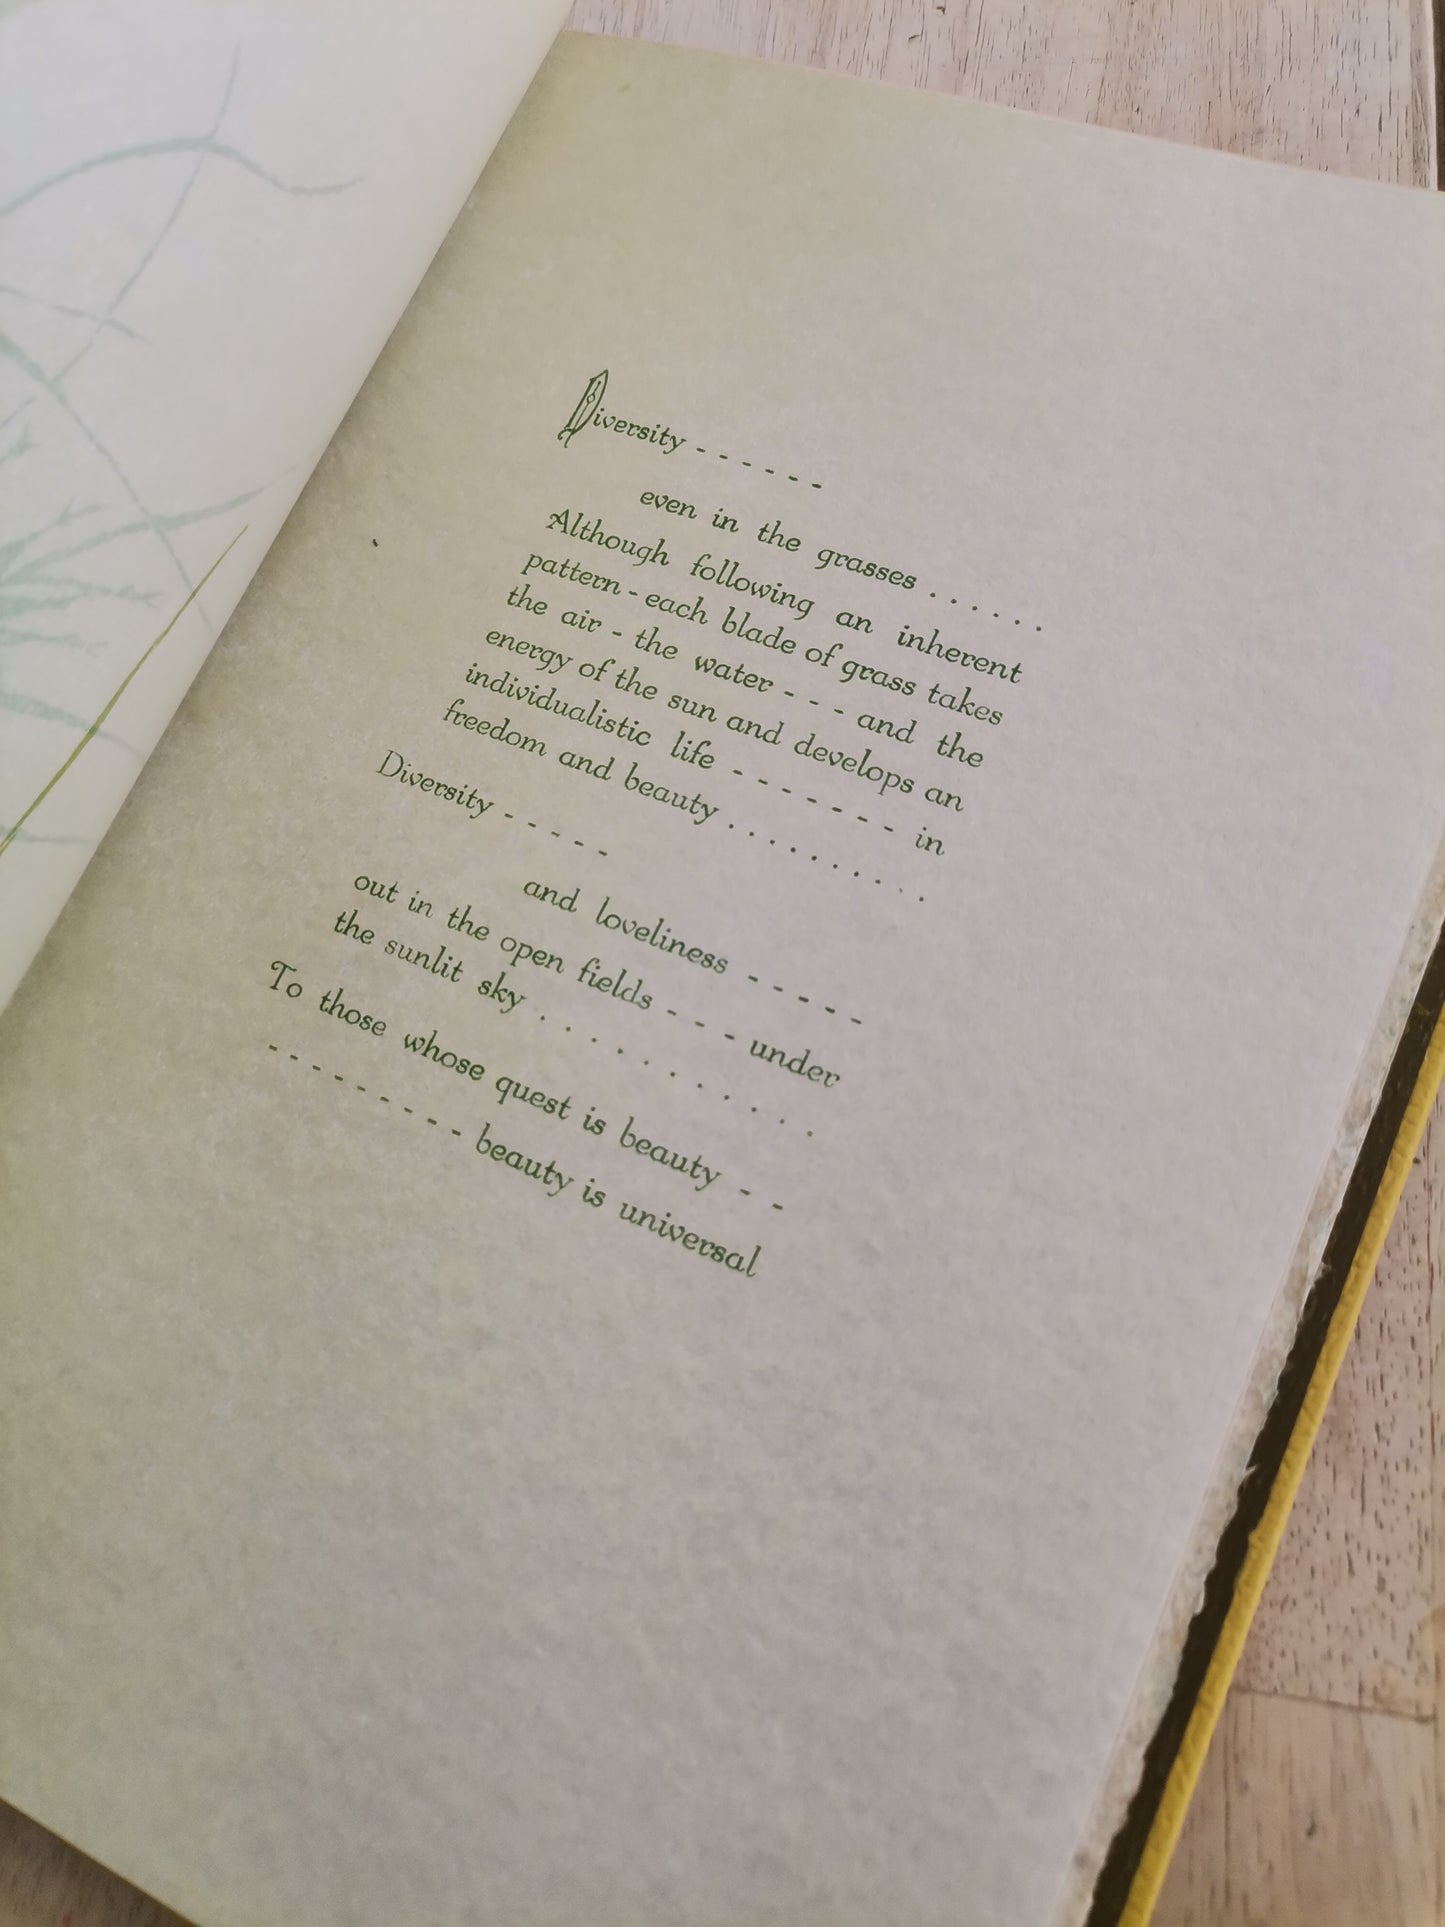 Diversity - - - - - -
even in the grasses . . . . . .
Although following an inherent
pattern - each blade of grass takes
the air - the water - - - and the
energy of the sun and develops an
individualistic life - - - - - - - in
freedom and beauty . . . . . . . . . .
Diversity - - - - -
and loveliness - - - - -
out in the open fields - - - under
the sunlit sky . . . . . . . . . . .
To those whose quest is beauty - -
- - - - - - - - - beauty is universal